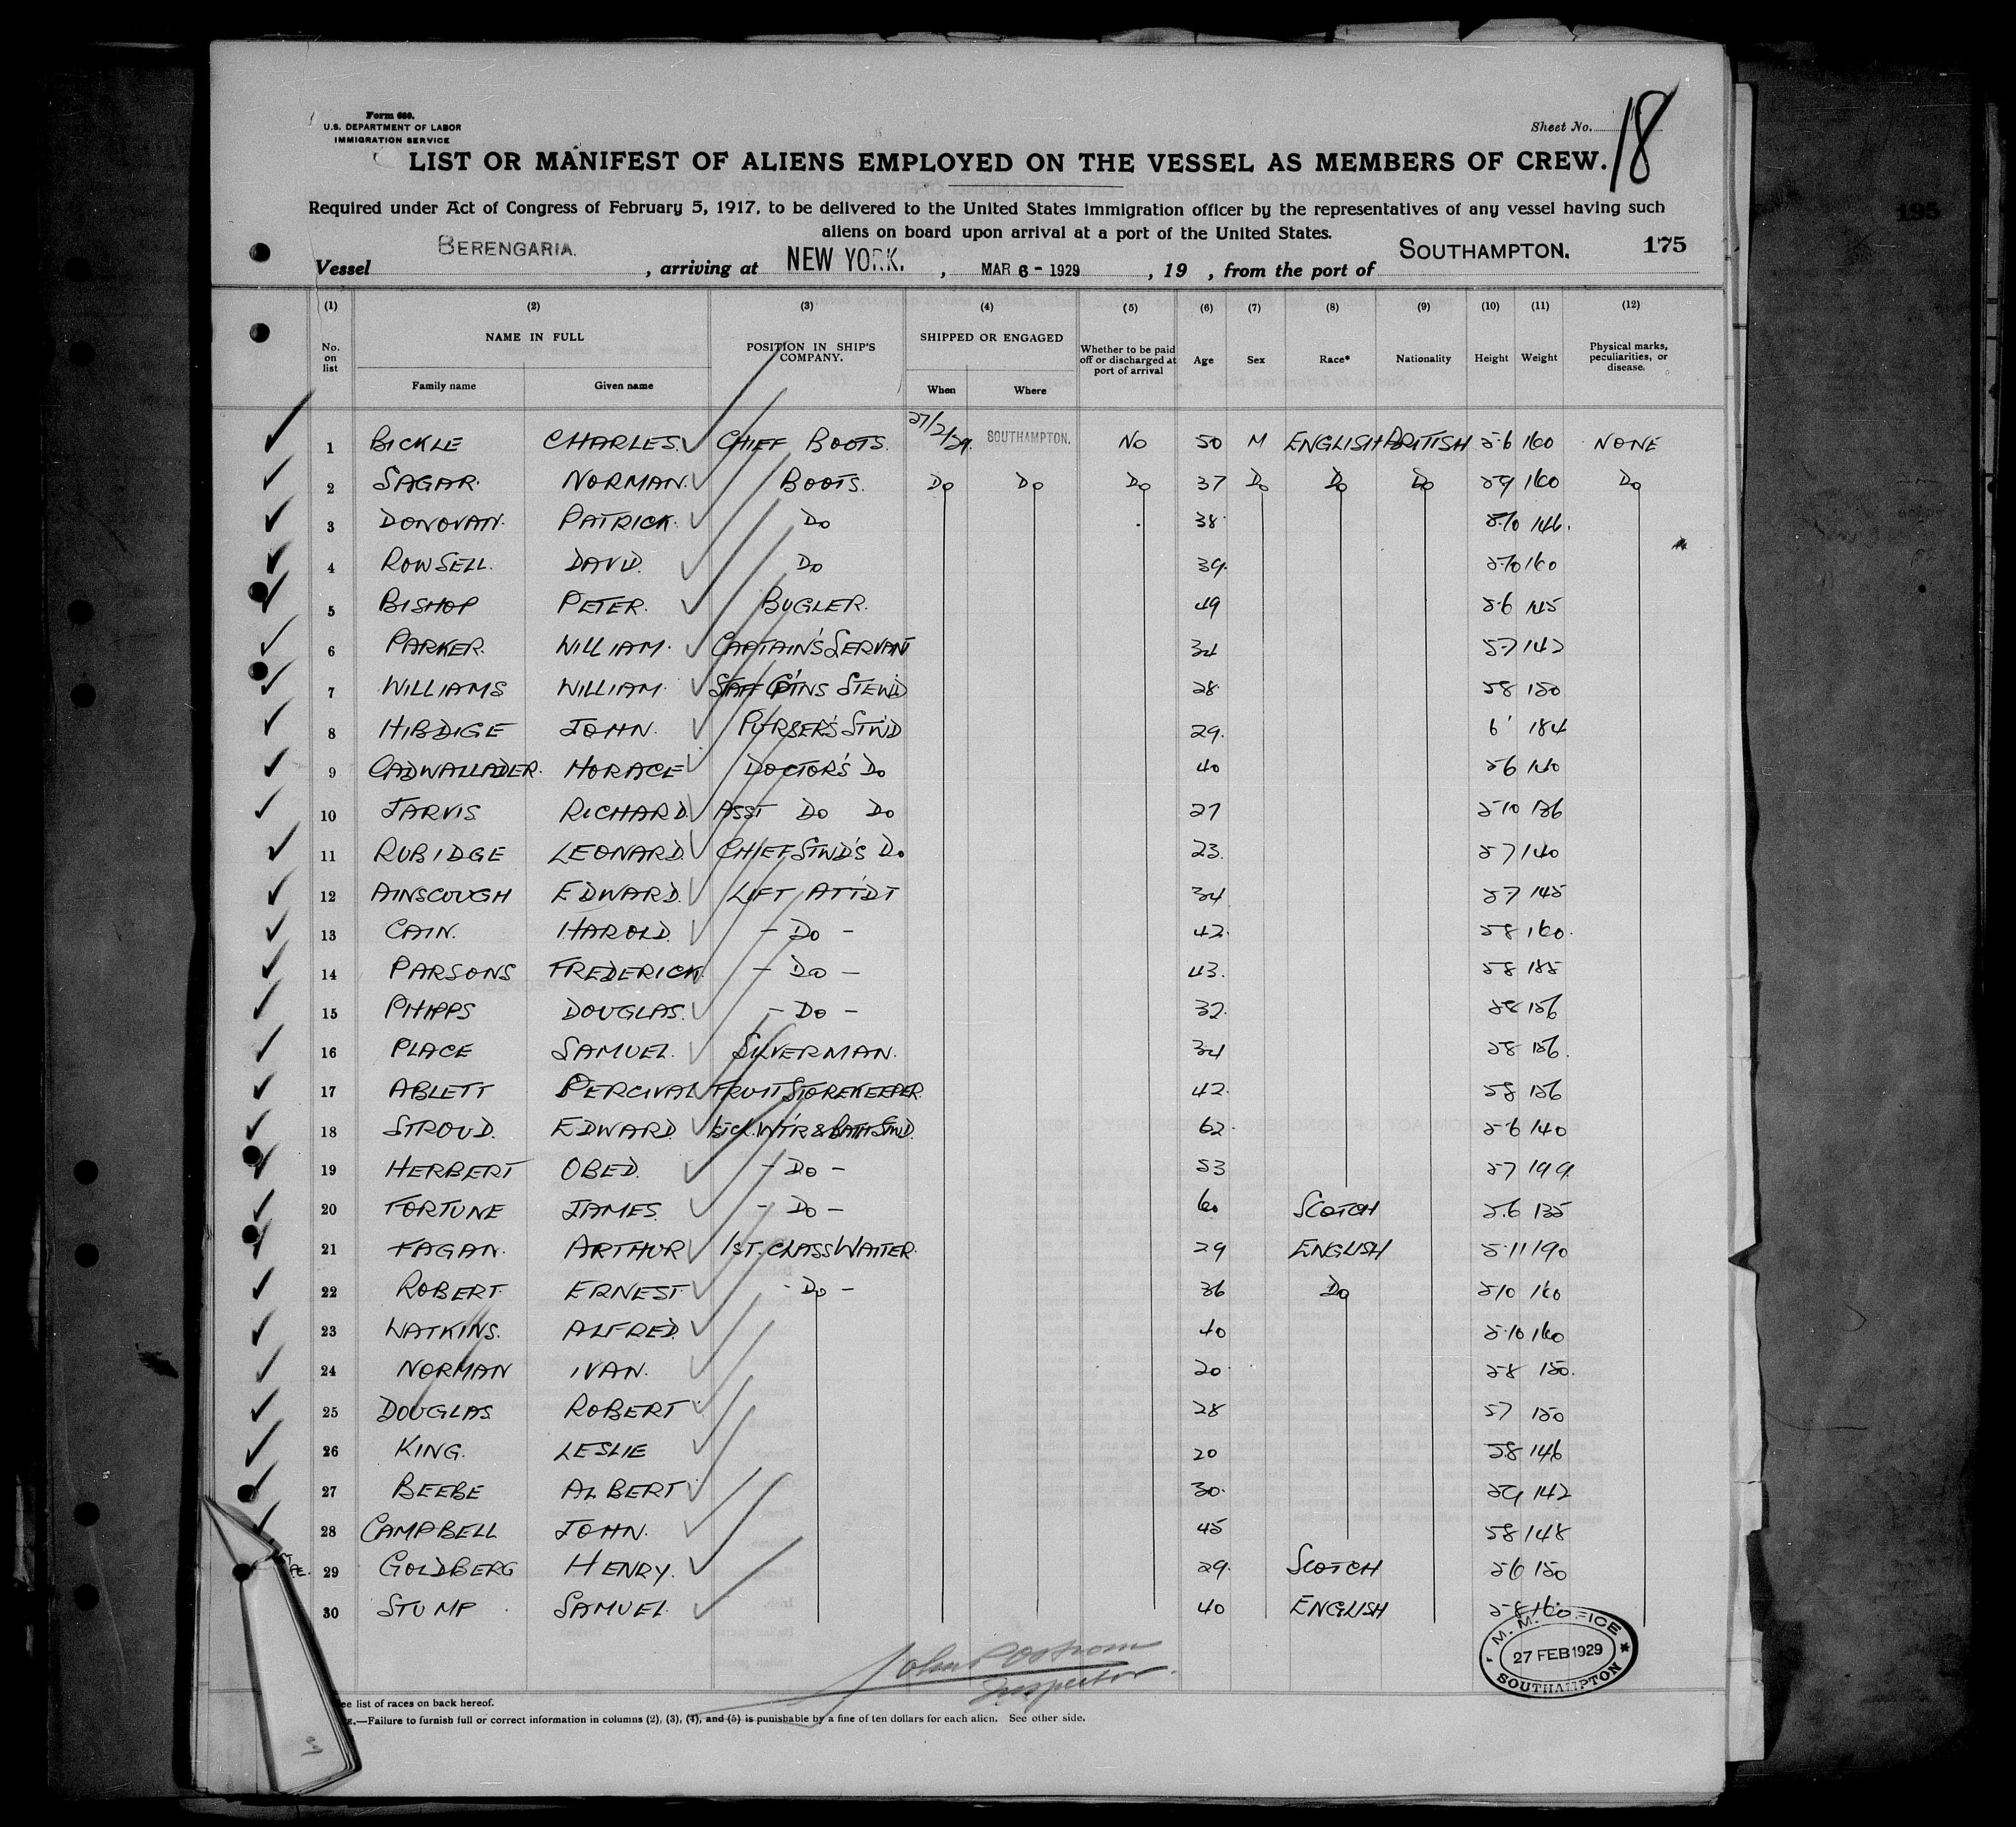 Form 689.
U.S. DEPARTMENT OF LABOR
IMMIGRATION SERVICE
Sheet No. 18
LIST OR MANIFEST OF ALIENS EMPLOYED ON THE VESSEL AS MEMBERS OF CREW.
Required under Act of Congress of February 5, 1917, to be delivered to the United States immigration officer by the representatives of any vessel having such
aliens on board upon arrival at a port of the United States.
175
Vessel BERENGARIA. , arriving at NEW YORK. , MAR 6 - 1929 , 19 , from the port of SOUTHAMPTON.
(1) (2) (3) (4) (5) (6) (7) (8) (9) (10) (11) (12)
No. on list NAME IN FULL Family name Given name POSITION IN SHIP'S COMPANY. SHIPPED OR ENGAGED When Where Whether to be paid off or discharged at port of arrival Age Sex Race* Nationality Height Weight Physical marks, peculiarities, or disease.
1 BICKLE CHARLES. CHIEF BOOTS. 27/2/29. SOUTHAMPTON. NO 50 M ENGLISH BRITISH 5-6 160 NONE
2 SAGAR. NORMAN. BOOTS. Do Do Do 37 Do Do Do 5-9 160 Do
3 DONOVAN. PATRICK. Do 38 5-10 146.
4 ROWSELL. DAVID. Do 39. 5-10 160
5 BISHOP PETER. BUGLER. 49 5-6 145
6 PARKER. WILLIAM. CAPTAIN'S SERVANT 34 5-7 142
7 WILLIAMS WILLIAM. STAFF CPTNS STEW'D 28 58 150
8 HIBDIGE JOHN. PURSER'S ST'WD 29. 6' 184
9 CADWALLADER. HORACE DOCTOR'S Do 40 56 140
10 JARVIS RICHARD. ASST Do Do 27 5-10 136
11 RUBIDGE LEONARD. CHIEF STWD'S Do 23. 57 140
12 AINSCOUGH EDWARD. LIFT ATTDT 34 57 145
13 CAIN. HAROLD. - Do - 42. 58 160.
14 PARSONS FREDERICK. - Do - 43. 58 185
15 PHIPPS DOUGLAS. - Do - 32. 58 156
16 PLACE SAMUEL. SILVERMAN. 34 58 156.
17 ABLETT PERCIVAL FRUIT STOREKEEPER. 42. 58 156
18 STROUD. EDWARD. WT'R & BATH STWD. 62. 5-6 140
19 HERBERT OBED. - Do - 53 57 199
20 FORTUNE JAMES. - Do - 60 SCOTCH 5.6 135
21 FAGAN. ARTHUR 1ST. CLASS WAITER. 29 ENGLISH 5.11 190
22 ROBERT. ERNEST. - Do - 36 Do 510 160
23 WATKINS. ALFRED. 40 5.10 160
24 NORMAN IVAN. 20. 5-8 150.
25 DOUGLAS ROBERT 28 57 150
26 KING. LESLIE 20 58 146
27 BEEBE ALBERT 30. 59 142
28 CAMPBELL JOHN. 45 58 148
29 GOLDBERG HENRY. 29. SCOTCH 56 150
30 STUMP SAMUEL. 40 ENGLISH 5-8 160
Inspector.
M. M. OFFICE
27 FEB 1929
SOUTHAMPTON
ee list of races on back hereof.
—Failure to furnish full or correct information in columns (2), (3), (4), and (5) is punishable by a fine of ten dollars for each alien. See other side.
195